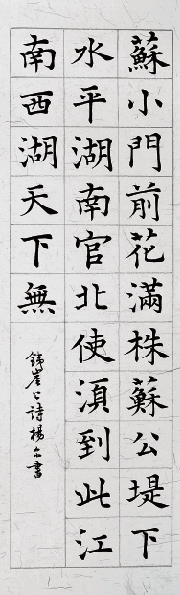 蘇小門前花滿株蘇公堤下
水平湖南官北使湏到此江
南西湖天下無
銕崖公詩楊尔書